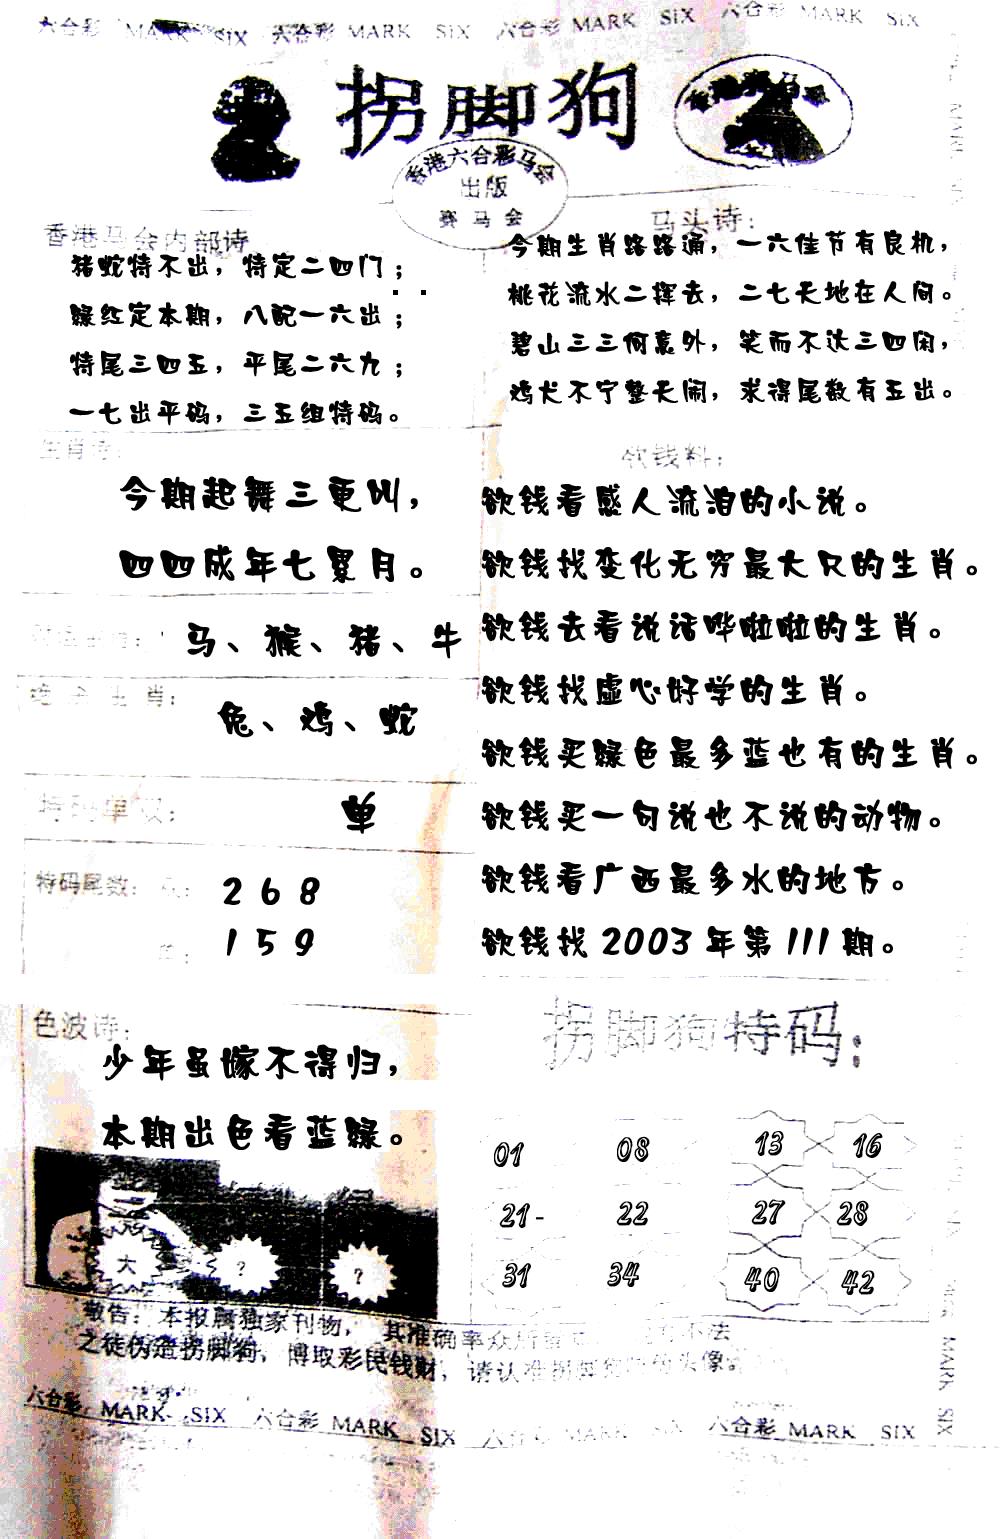 六合彩 MARK SIX 六合彩 MARK SIX 六合彩 MARK SIX 六合彩 MARK SIX
拐脚狗
香港六合彩马会
出版
赛马会
香港马会内部诗
猪蛇特不出，特定二四门；
绿红定本期，八配一六出；
特尾三四五，平尾二六九；
一七出平码，三五组特码。
马头诗：
今期生肖路路通，一六佳节有良机，
桃花流水二挥去，二七天地在人间。
碧山三三何意外，笑而不达三四闲，
鸡犬不宁整天闹，求得尾数有五出。
生肖诗：
今期起舞三更叫，
四四成年七累月。
马、猴、猪、牛
绝杀生肖：
兔、鸡、蛇
特码单双：
单
特码尾数：
2 6 8
1 5 9
欲钱料：
欲钱看感人流泪的小说。
欲钱找变化无穷最大只的生肖。
欲钱去看说话哗啦啦的生肖。
欲钱找虚心好学的生肖。
欲钱买绿色最多蓝也有的生肖。
欲钱买一句说也不说的动物。
欲钱看广西最多水的地方。
欲钱找 2003 年第 111 期。
色波诗：
少年虽嫁不得归，
本期出色看蓝绿。
大 ? ?
拐脚狗特码：
01 08 13 16
21- 22 27 28
31 34 40 42
敬告：本报属独家刊物，其准确率众所 不法
之徒伪造拐脚狗，博取彩民钱财，请认准拐脚狗 头像
六合彩 MARK SIX 六合彩 MARK SIX 六合彩 MARK SIX 六合彩 MARK SIX
MARK SIX